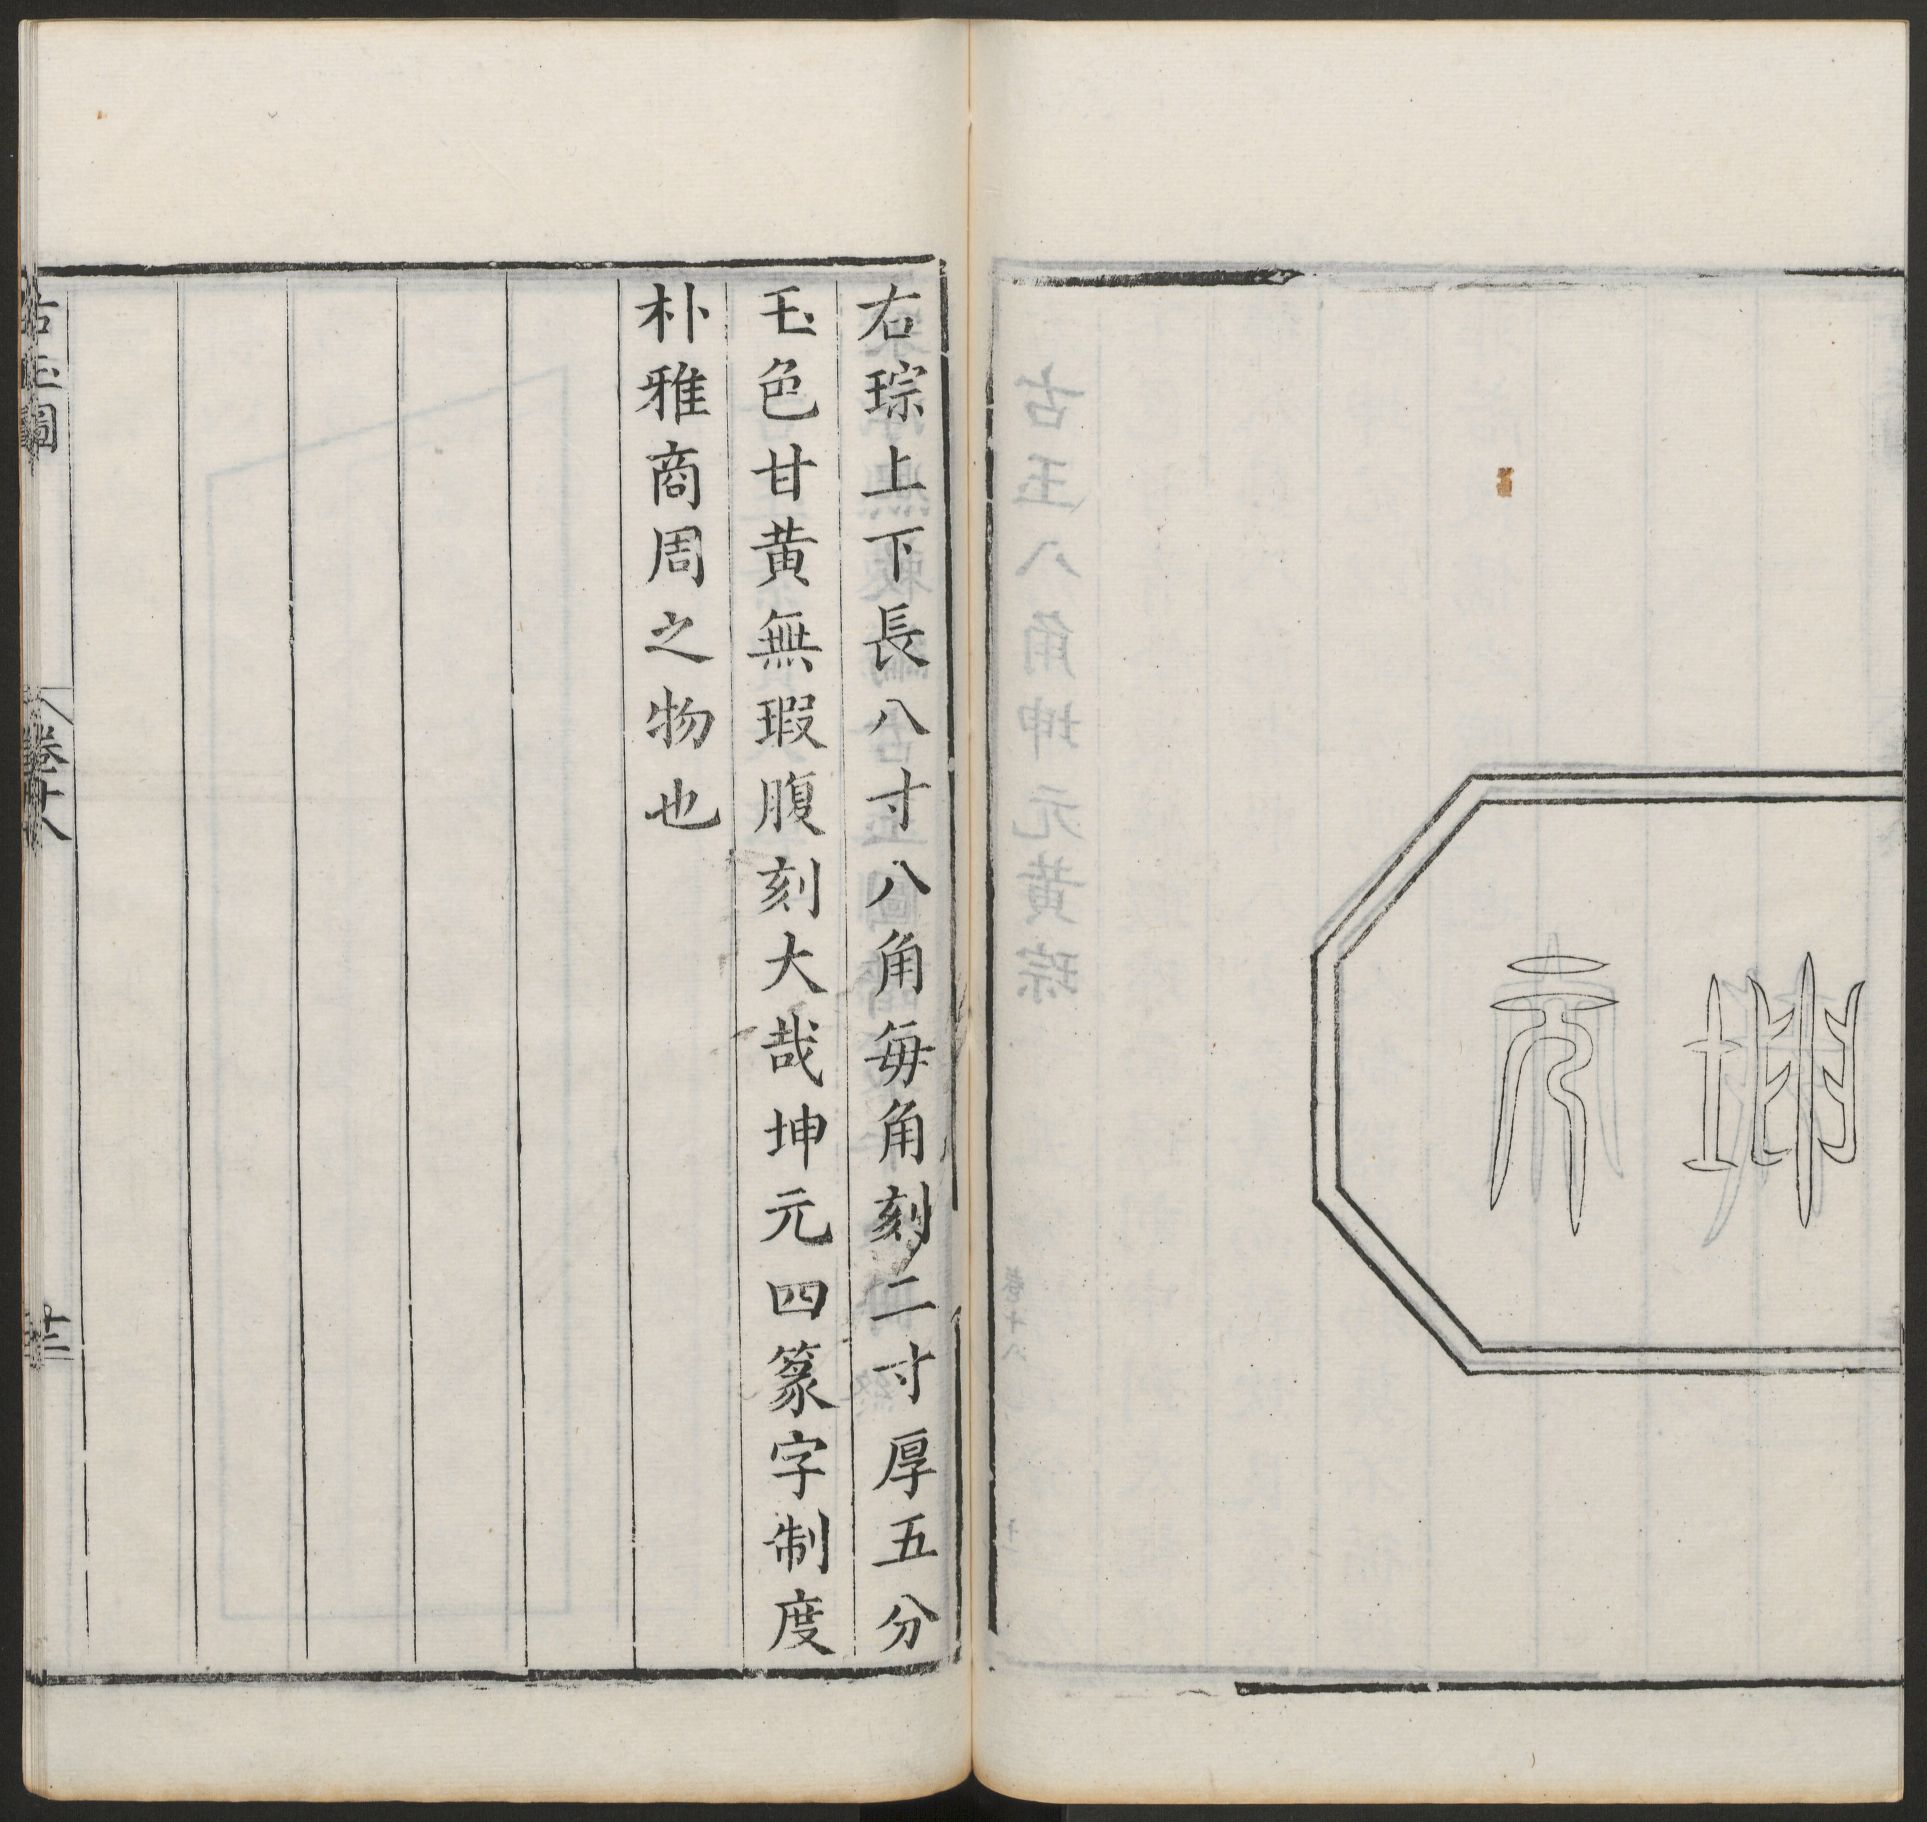 坤
元
右琮上下長八寸八角每角刻二寸厚五分
玉色甘黃無瑕腹刻大哉坤元四篆字制度
朴雅商周之物也
古玉圖
卷十八
十二